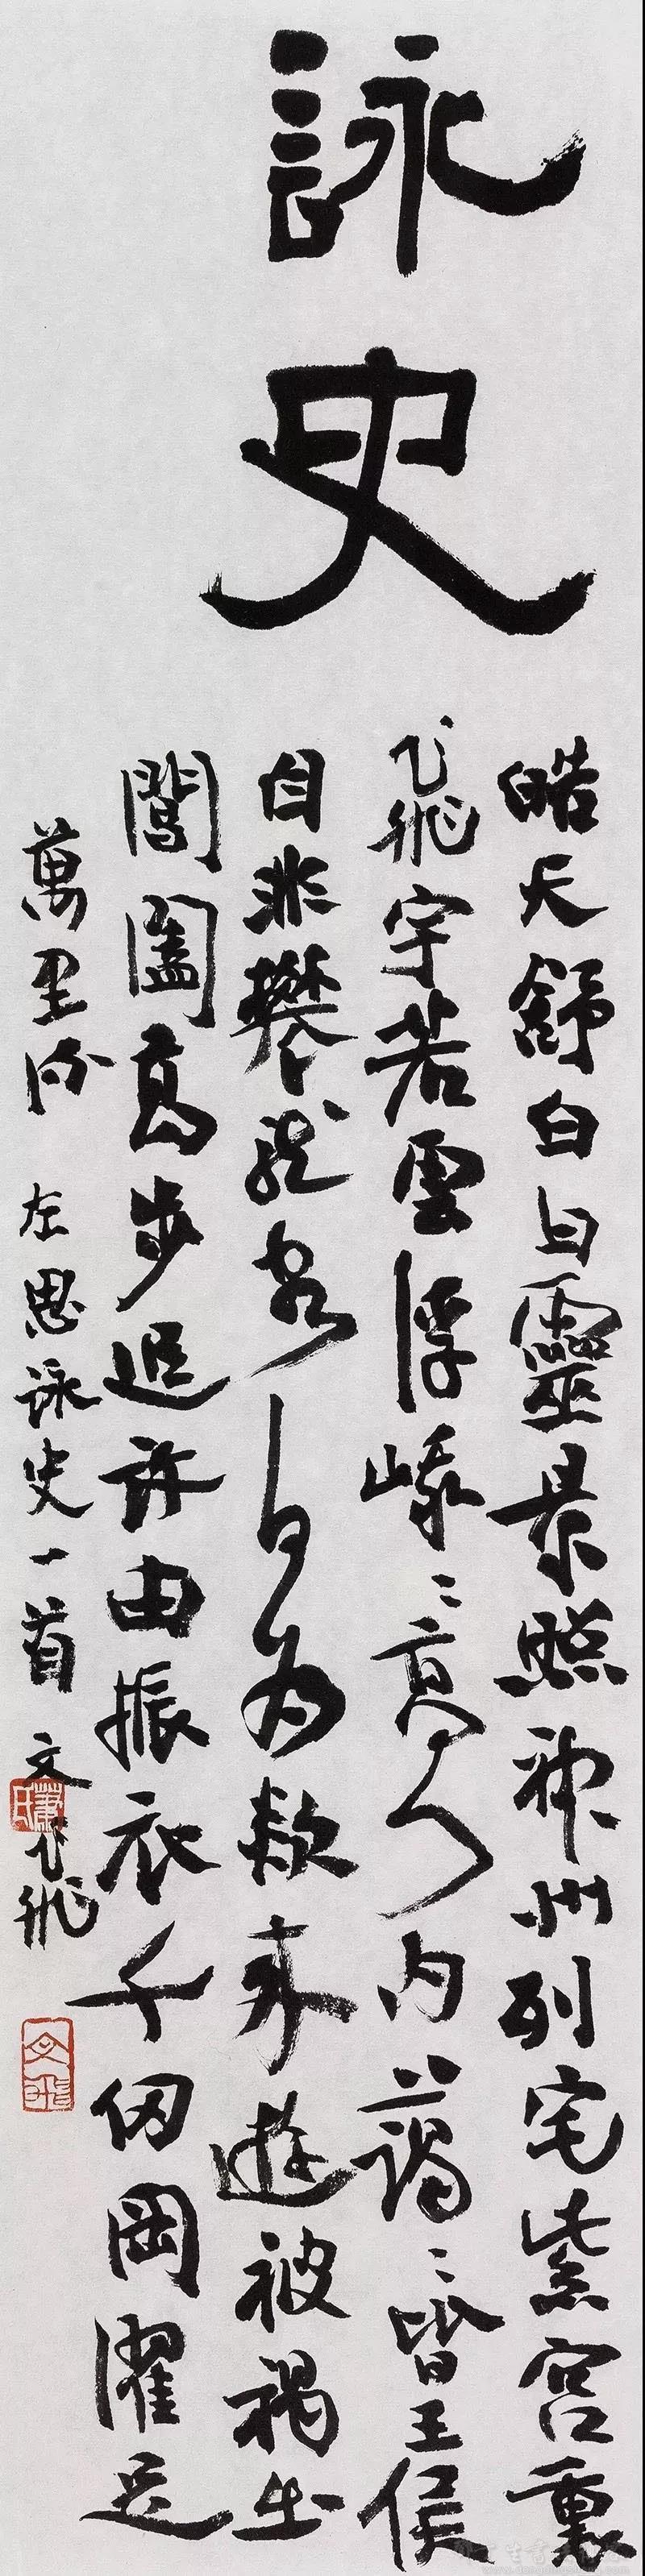 詠史
皓天舒白日靈景照神州列宅紫宮裏
飛宇若雲浮峨〻高門内藹〻皆王侯
自非攀龍客何為欻來遊被褐出
閶闔高步追許由振衣千仞岡濯足
萬里流 左思詠史一首 文飛
蕭氏
文飛